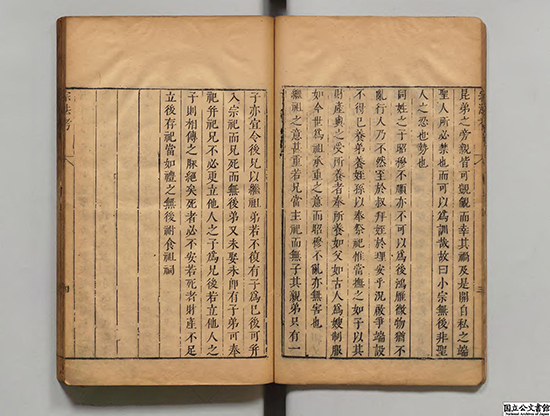 昆弟之旁親皆可覬覦而幸其禍及是開自私之端
聖人所必禁也而可以為訓哉故曰小宗無後非聖
人之忍也勢也
同姓之子昭穆不順亦不可以為後鴻雁微物猶不
亂行人乃不然至於叔拜姪於理安乎況啟爭端設
不得已養弟養姪孫以奉祭祀惟當撫之如子以其
財產與之受所養者奉所養如父如古人為嫂制服
如今世為祖承重之意而昭穆不亂亦無害也
繼祖之意甚重若兄當主祀而無子其親弟只有一
子亦宜令後兄以繼祖弟若不復有子為已後可并
入宗祀而兄死而無後弟又未娶未即有子弟可奉
祀并祀兄不必更立他人之子為兄後若立他人之
子則相傳之脈絕矣死者必不安若死者財產不足
立後存祀當如禮之無後祔食祖祠
宗法考
三
四
国立公文書館
National Archives of Japan